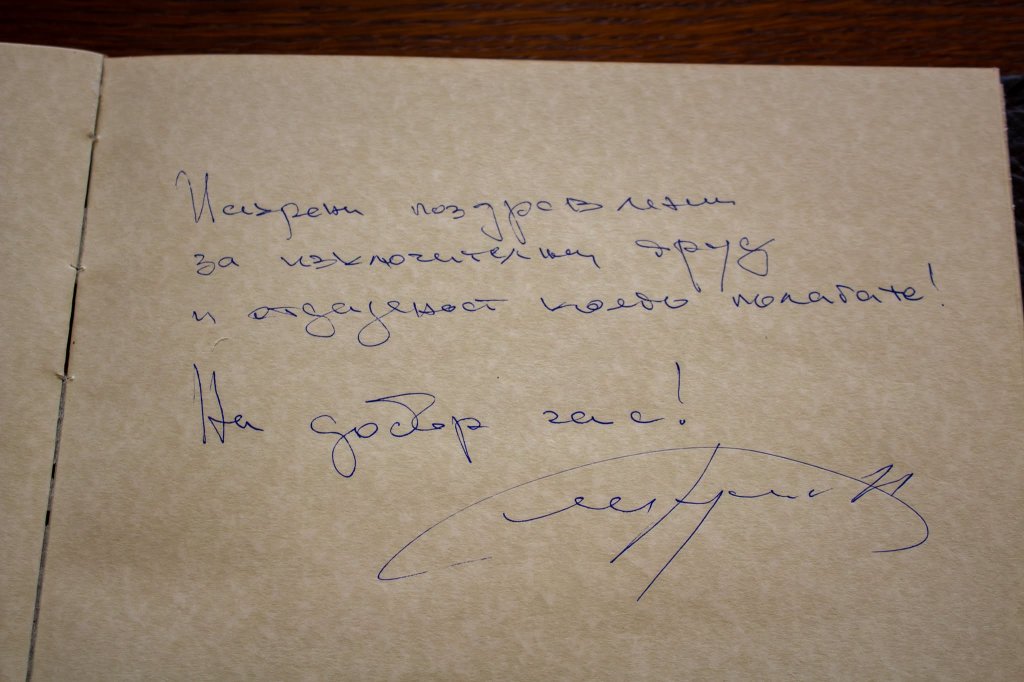 Искрени поздравления
за изключителния труд
и отдаденост което полагате!
На добър час!